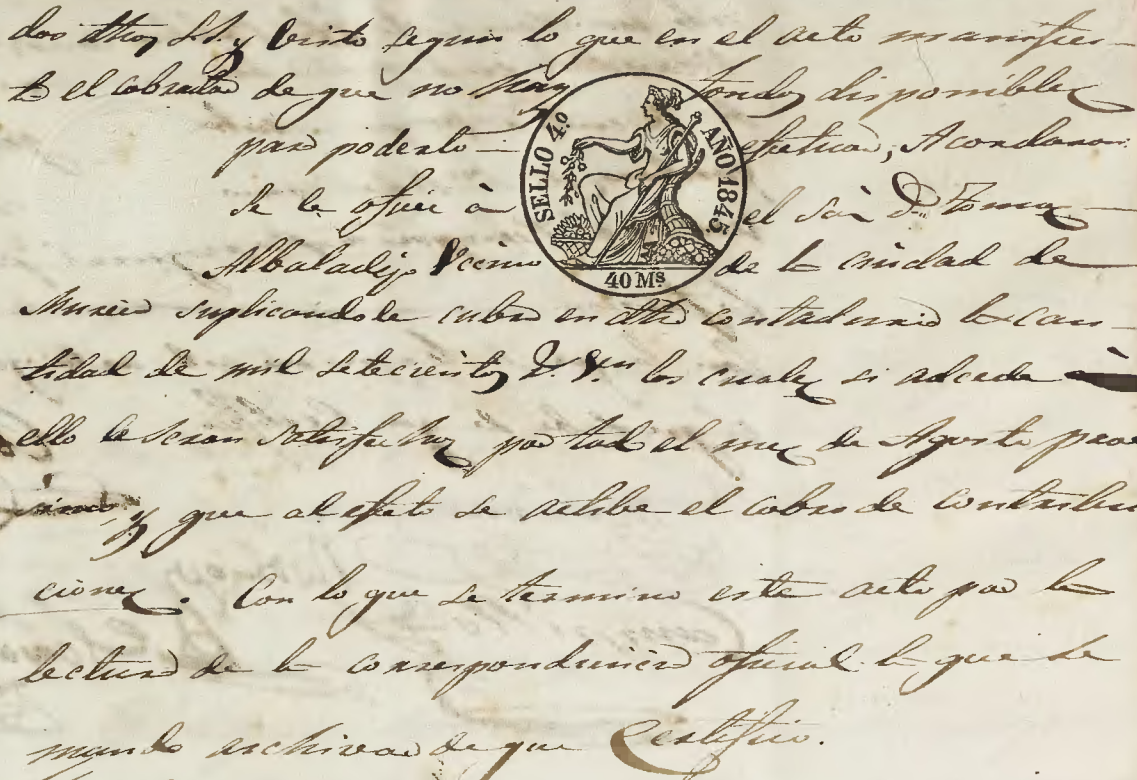 dos dhos SS. y Visto segun lo que en el acto manifies-
to el cobrador de que no hay fondos disponibles
para poderlo - efectuar, Acordaron:
Se le oficie á el Sór Dn. Tomas
Albaladejo Vecino de la ciudad de
Murcia suplicandole cubra en dha contaduria la can-
tidad de mil setecientos Rs. Vn. los cuales si adcede á
ello le seran satisfechos por todo el mes de Agosto pro-
simo, y que al efeto se active el cobro de contribu
ciones. Con lo que se termino este acto por la
lectura de la correspondencia oficial la que se
mando archivar de que Certifico.
SELLO 4.º AÑO 1845.
40 Ms